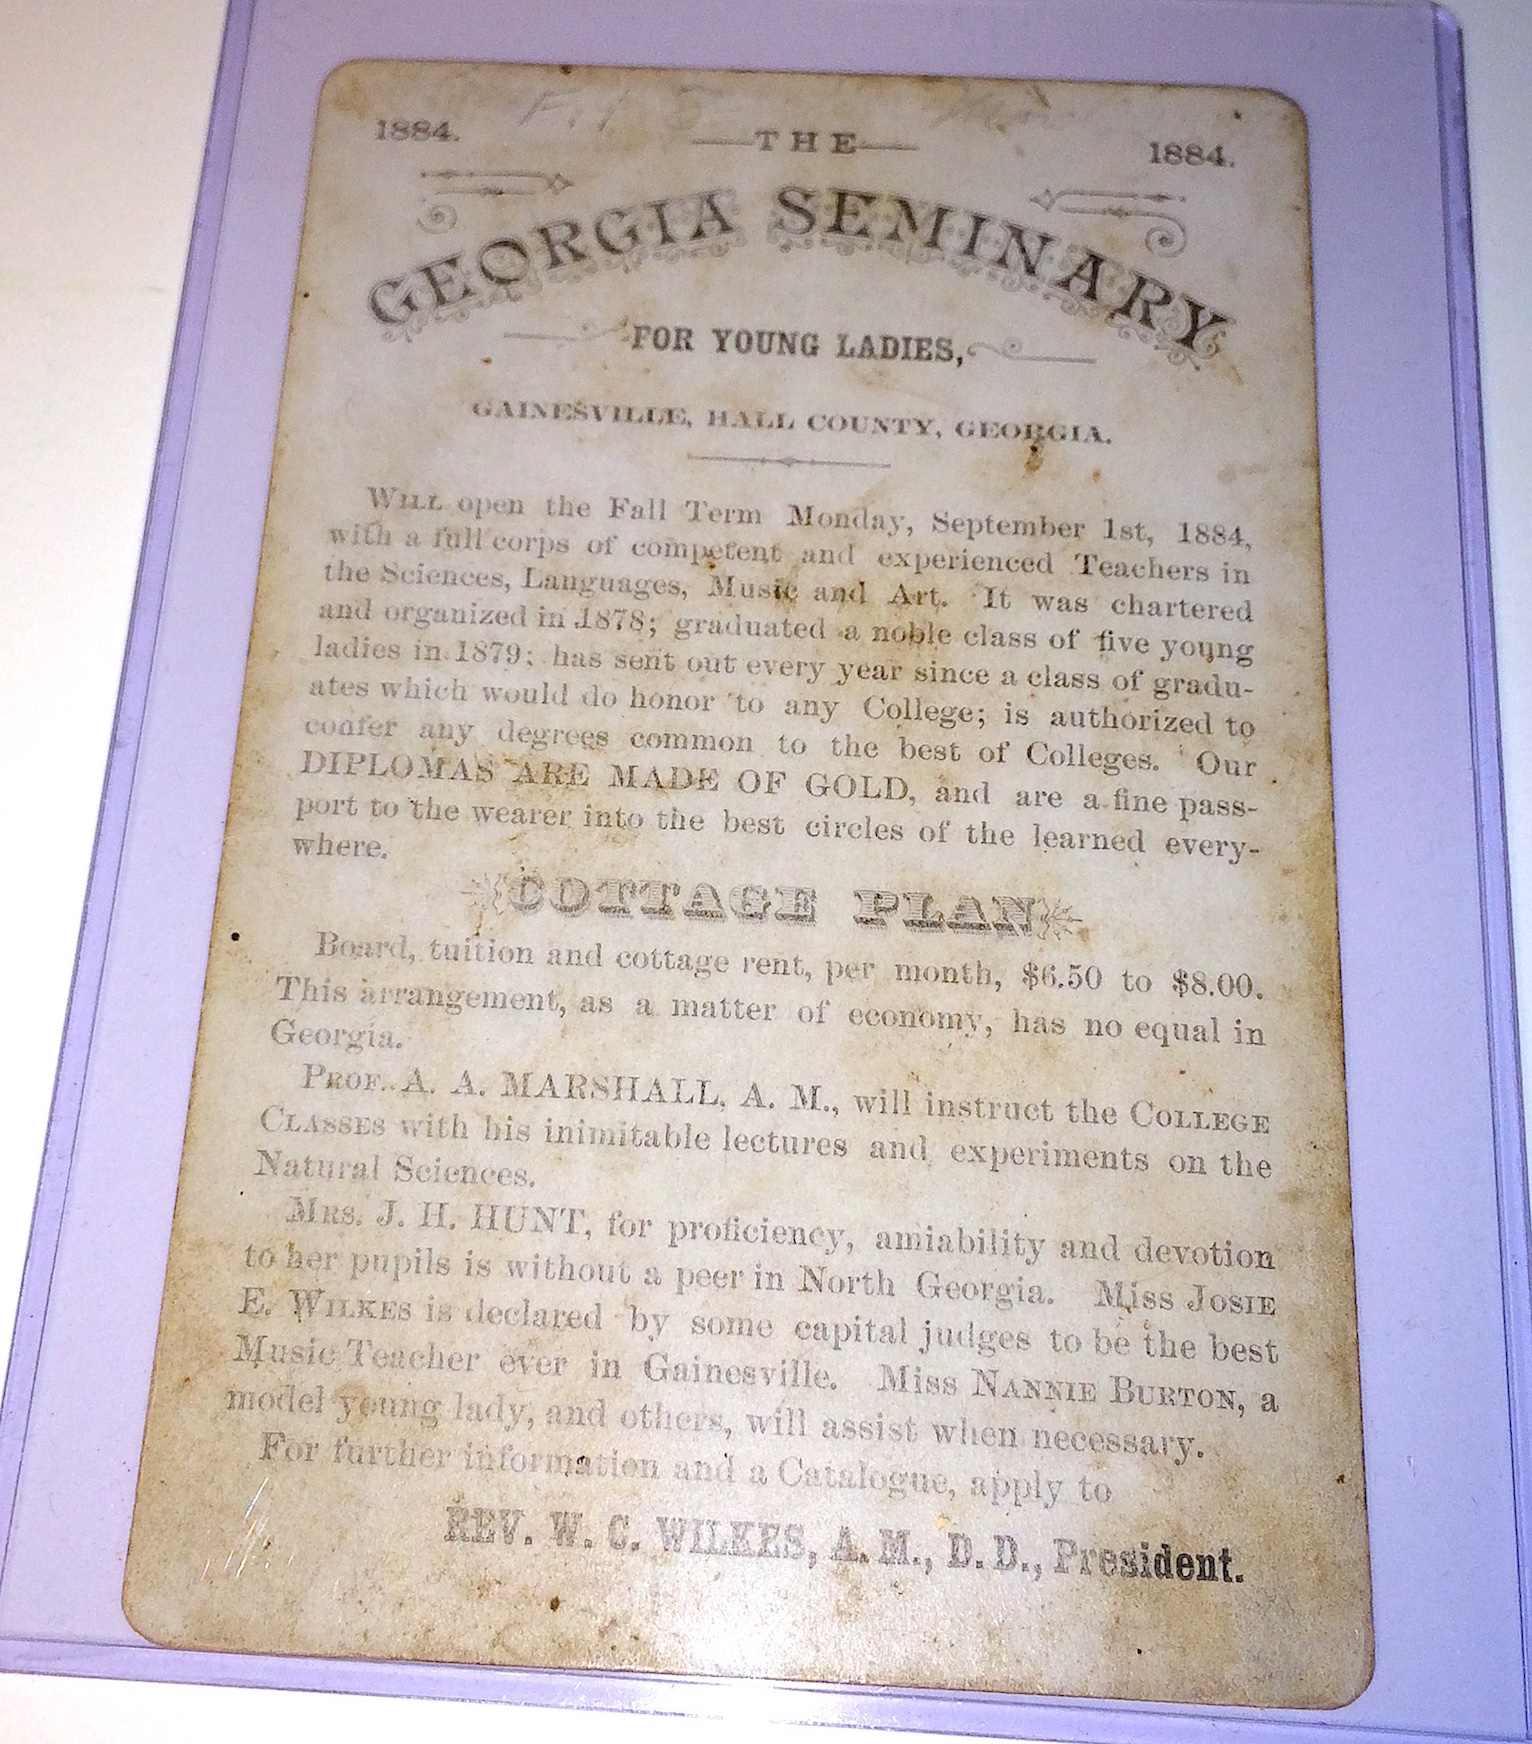 1884. —THE— 1884.
GEORGIA SEMINARY
FOR YOUNG LADIES,
GAINESVILLE, HALL COUNTY, GEORGIA.
WILL open the Fall Term Monday, September 1st, 1884,
with a full corps of competent and experienced Teachers in
the Sciences, Languages, Music and Art. It was chartered
and organized in 1878; graduated a noble class of five young
ladies in 1879; has sent out every year since a class of gradu-
ates which would do honor to any College; is authorized to
confer any degrees common to the best of Colleges. Our
DIPLOMAS ARE MADE OF GOLD, and are a fine pass-
port to the wearer into the best circles of the learned every-
where.
COTTAGE PLAN
Board, tuition and cottage rent, per month, $6.50 to $8.00.
This arrangement, as a matter of economy, has no equal in
Georgia.
PROF. A. A. MARSHALL, A. M., will instruct the COLLEGE
CLASSES with his inimitable lectures and experiments on the
Natural Sciences.
MRS. J. H. HUNT, for proficiency, amiability and devotion
to her pupils is without a peer in North Georgia. Miss JOSIE
E. WILKES is declared by some capital judges to be the best
Music Teacher ever in Gainesville. Miss NANNIE BURTON, a
model young lady, and others, will assist when necessary.
For further information and a Catalogue, apply to
REV. W. C. WILKES, A. M., D. D., President.